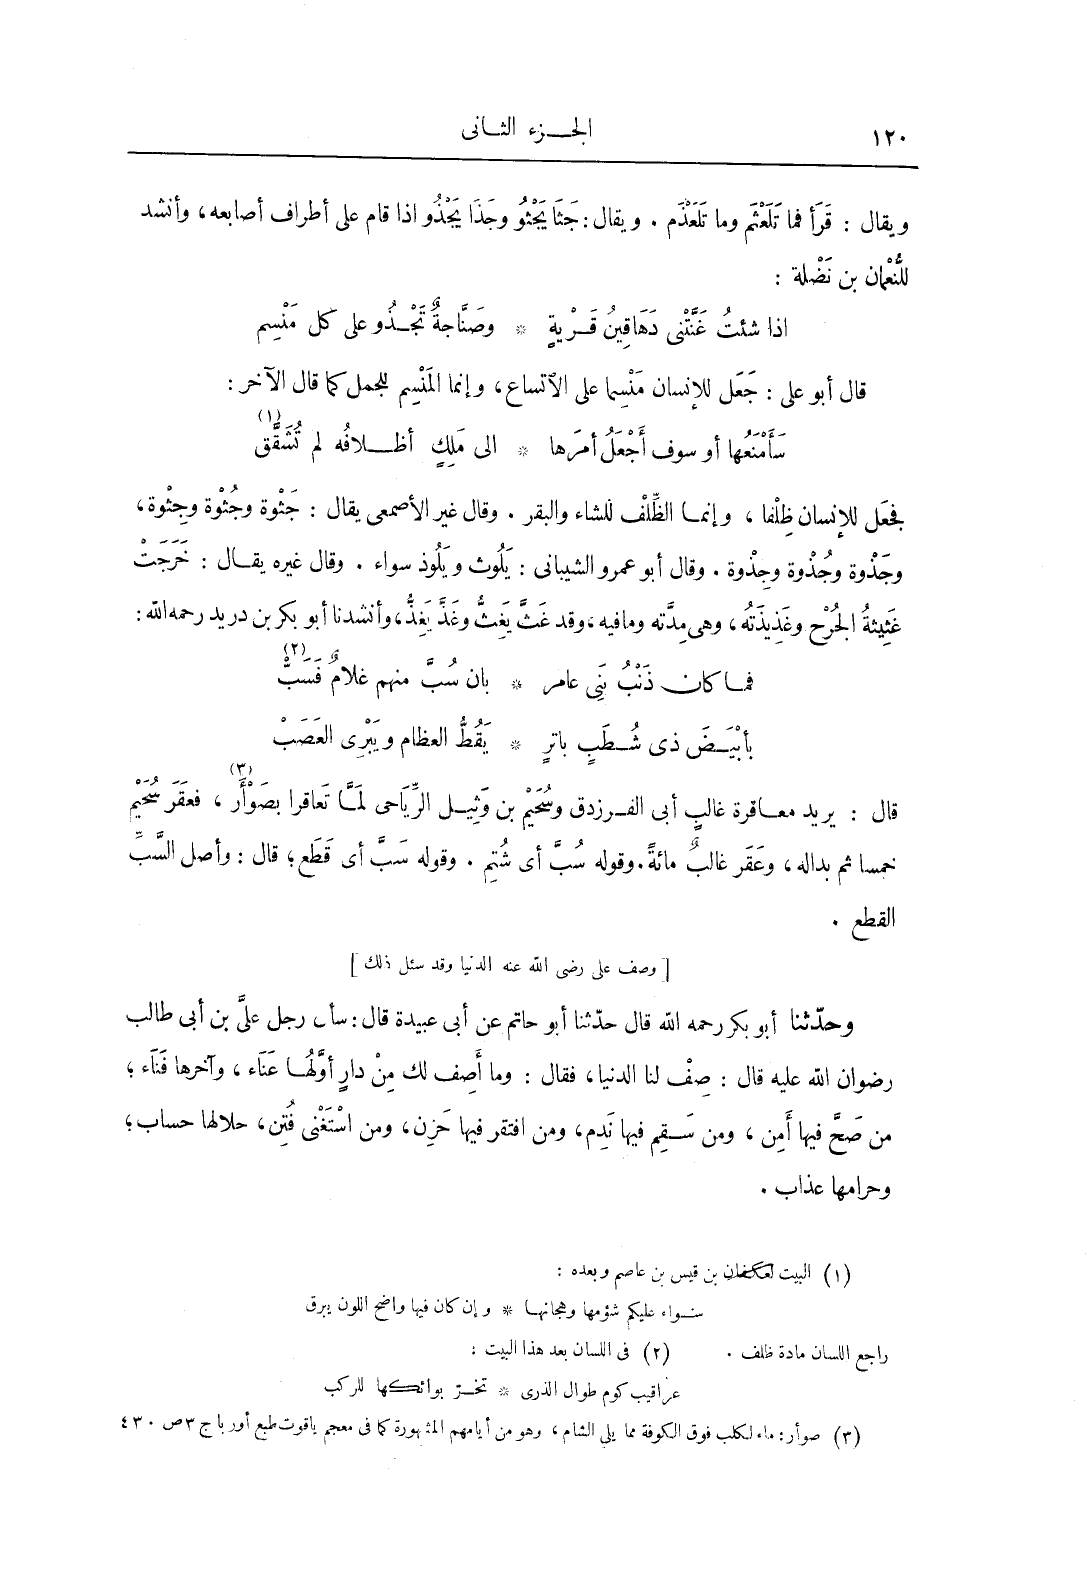 ١٢٠ الجـــزء الثـانى
ويقال : قَرَأ فما تَلَعْثَم وما تَلَعْذَم . ويقال : جَثَا يَجْثُو وجَذَا يَجْذُو اذا قام على أطراف أصابعه، وأنشد
للنُّعْمان بن نَضْلة :
اذا شئتُ غَنَّتْنى دَهَاقِينُ قَـرْيةٍ * وصَنَّاجةٌ تَجْـذُو على كل مَنْسِم
قال أبو على : جَعَل للإنسان مَنْسِما على الآتساع، وإنما المَنْسِم للجمل كما قال الآخر :
سَأَمْنَعُها أو سوف أَجْعَلُ أمرَها * الى مَلِكٍ أظـلافُه لم تُشَقَّق (١)
فجَعَل للإنسان ظِلْفا ، وإنمـا الظِّلْف للشاء والبقر . وقال غير الأصمعى يقال : جَثْوة وجُثْوة وجِثْوة،
وجَذْوة وجُذْوة وجِذْوة . وقال أبو عمرو الشيبانى : يَلُوث ويَلُوذ سواء . وقال غيره يقـال : خَرَجَتْ
غَثِيثةُ الجُرْح وغَذِيذَتُه، وهى مِدَّته ومافيه، وقد غَثَّ يَغِثُّ وغَذَّ يَغِذُّ، وأنشدنا أبو بكر بن دريد رحمه الله :
فمـا كان ذَنْبُ بَنِى عامر * بان سُبَّ منهم غلامٌ فَسَبَّْ (٢)
بأبْيَـضَ ذى شُـطَبٍ باترٍ * يَقُطُّ العظام ويَبْرِى العَصَبْ
قال : يريد معـاقرة غالبٍ أبى الفـرزدق وسُحَيْم بن وَثِيـل الرِّيَاحى لمَّـا تَعاقرا بصَوْأَر (٣) ، فعقَر سُحَيْم
خمسا ثم بداله ، وعَقَر غالبٌ مائةً . وقوله سُبَّ أى شُتِم . وقوله سَبَّ أى قَطَع؛ قال : وأصل السَّبِّ
القطع .
[ وصف على رضى الله عنه الدنيا وقد سئل ذلك ]
وحدّثنا أبو بكر رحمه الله قال حدّثنا أبو حاتم عن أبى عبيدة قال : سأل رجل علىَّ بن أبى طالب
رضوان الله عليه قال : صِفْ لنا الدنيا، فقال : وما أَصِف لك مِنْ دارٍ أوَّلُهـا عَنَاء ، وآخرها فَنَاء ؛
من صَحَّ فيها أَمِن ، ومن سَـقِم فيها نَدِم، ومن افتقر فيها حَزِن، ومن اسْتَغْنى فُتِن، حلالها حساب؛
وحرامها عذاب .
(١) البيت لعكفان بن قيس بن عاصم وبعده :
سـواء عليكم شؤمها وهجانهـا * وإن كان فيها واضح اللون يبرق
راجع اللسان مادة ظلف . (٢) فى اللسان بعد هذا البيت :
عراقيب كوم طوال الذرى * تخـر بوائكها للركب
(٣) صوأر : ماء لكلب فوق الكوفة مما يلى الشام ، وهو من أيامهم المشهورة كما فى معجم ياقوت طبع أوربا ج ٣ ص ٤٣٠